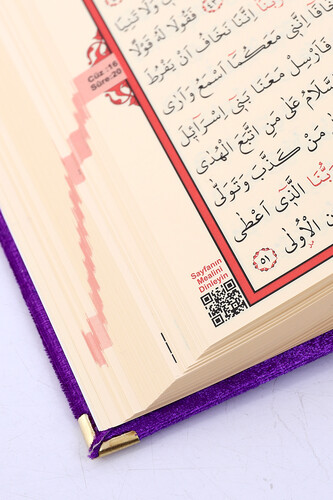 وَلَا تَنِيَا
رَبَّنَا اِنَّنَا نَخَافُ اَنْ يَفْرُطَ
فَقُولَا لَهُ قَوْلًا
تَخَافَا اِنَّنِي مَعَكُمَا اَسْمَعُ وَاَرٰى
فَاَرْسِلْ مَعَنَا بَنِي اِسْرَائِلَ
السَّلَامُ عَلٰى مَنِ اتَّبَعَ الْهُدٰى
مَنْ كَذَّبَ وَتَوَلّٰى
رَبُّنَا الَّذِي اَعْطٰى
الْاُولٰى ٥١
Cüz :16
Sûre:20
Sayfanın
Mealini
Dinleyin